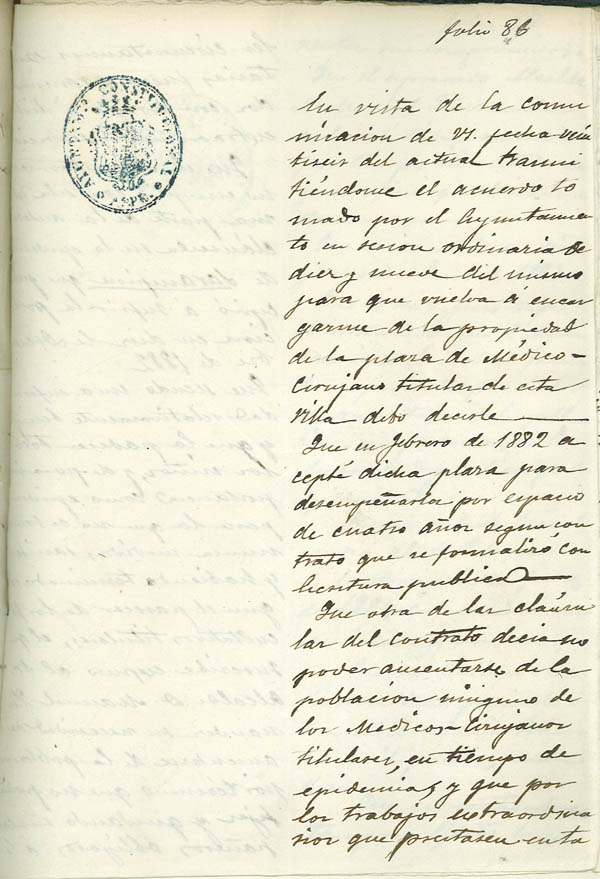 folio 86
AYUNTAMIENTO CONSTITUCIONAL
ASPE
En vista de la comu
nicacion de V. fecha vein
tiseis del actual trasmi
tiéndome el acuerdo to
mado por el Ayuntamien
to en sesion ordinaria de
diez y nueve del mismo
para que vuelva á encar
garme de la propiedad
de la plaza de Médico-
Cirujano titular de esta
villa debo decirle
Que en febrero de 1882 a
cepté dicha plaza para
desempeñarla por espacio
de cuatro años segun con
trato que se formalizó con
Escritura publica
Que otra de las cláusu
las del contrato decia no
poder ausentarse de la
poblacion ninguno de
los Medicos-Cirujanos
titulares, en tiempo de
epidemias y que por
los trabajos extraordina
rios que prestasen en ta